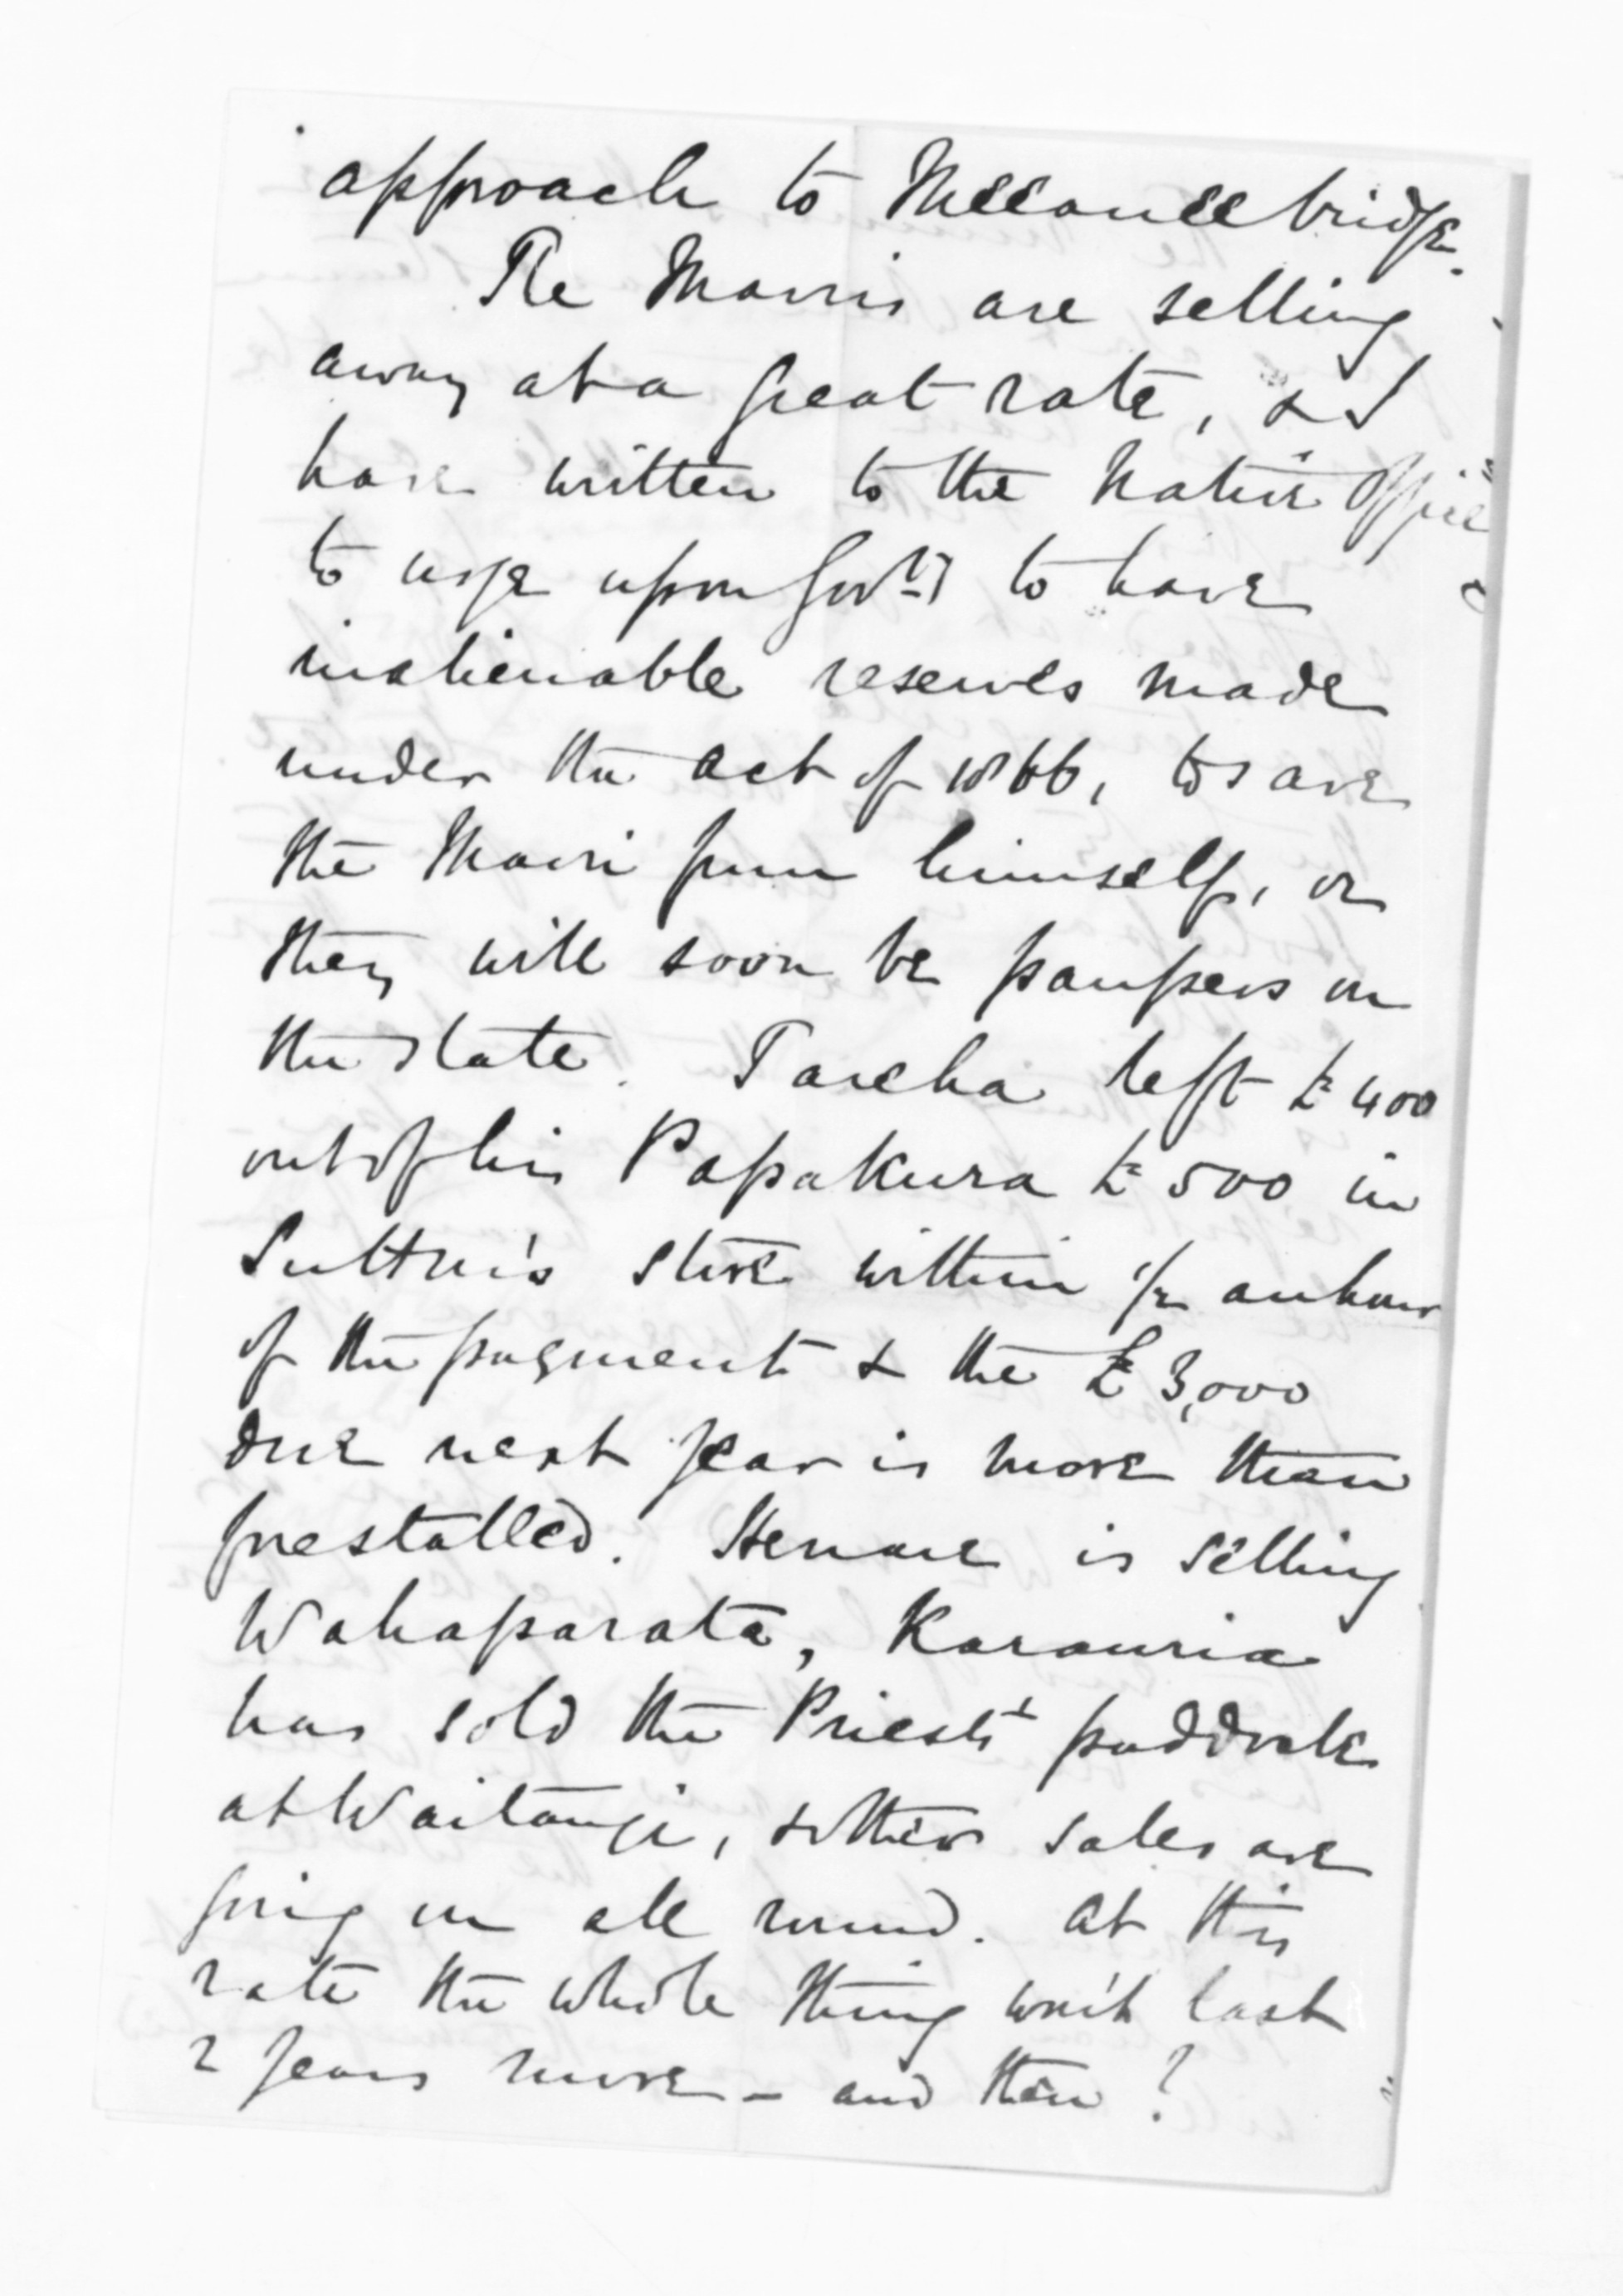 approach to Meeanee bridge.
The Maoris are selling
away at a great rate, & I
have written to the Native Office
to urge upon Govt to have
inalienable reserves made
under the Act of 1866, to save
the Maori from himself, or
they will soon be paupers on
the state. Tareha left £400
out of his Papakura £500 in
Sutton's store within 1/2 an hour
of the payment & the £3,000
due next year is more than
forestalled. Henare is selling
Wahaparata, Karauria
has sold the Priests' paddock
at Waitangi, & other sales are
going on all round. At this
rate the whole thing won't last
2 years more - and then?